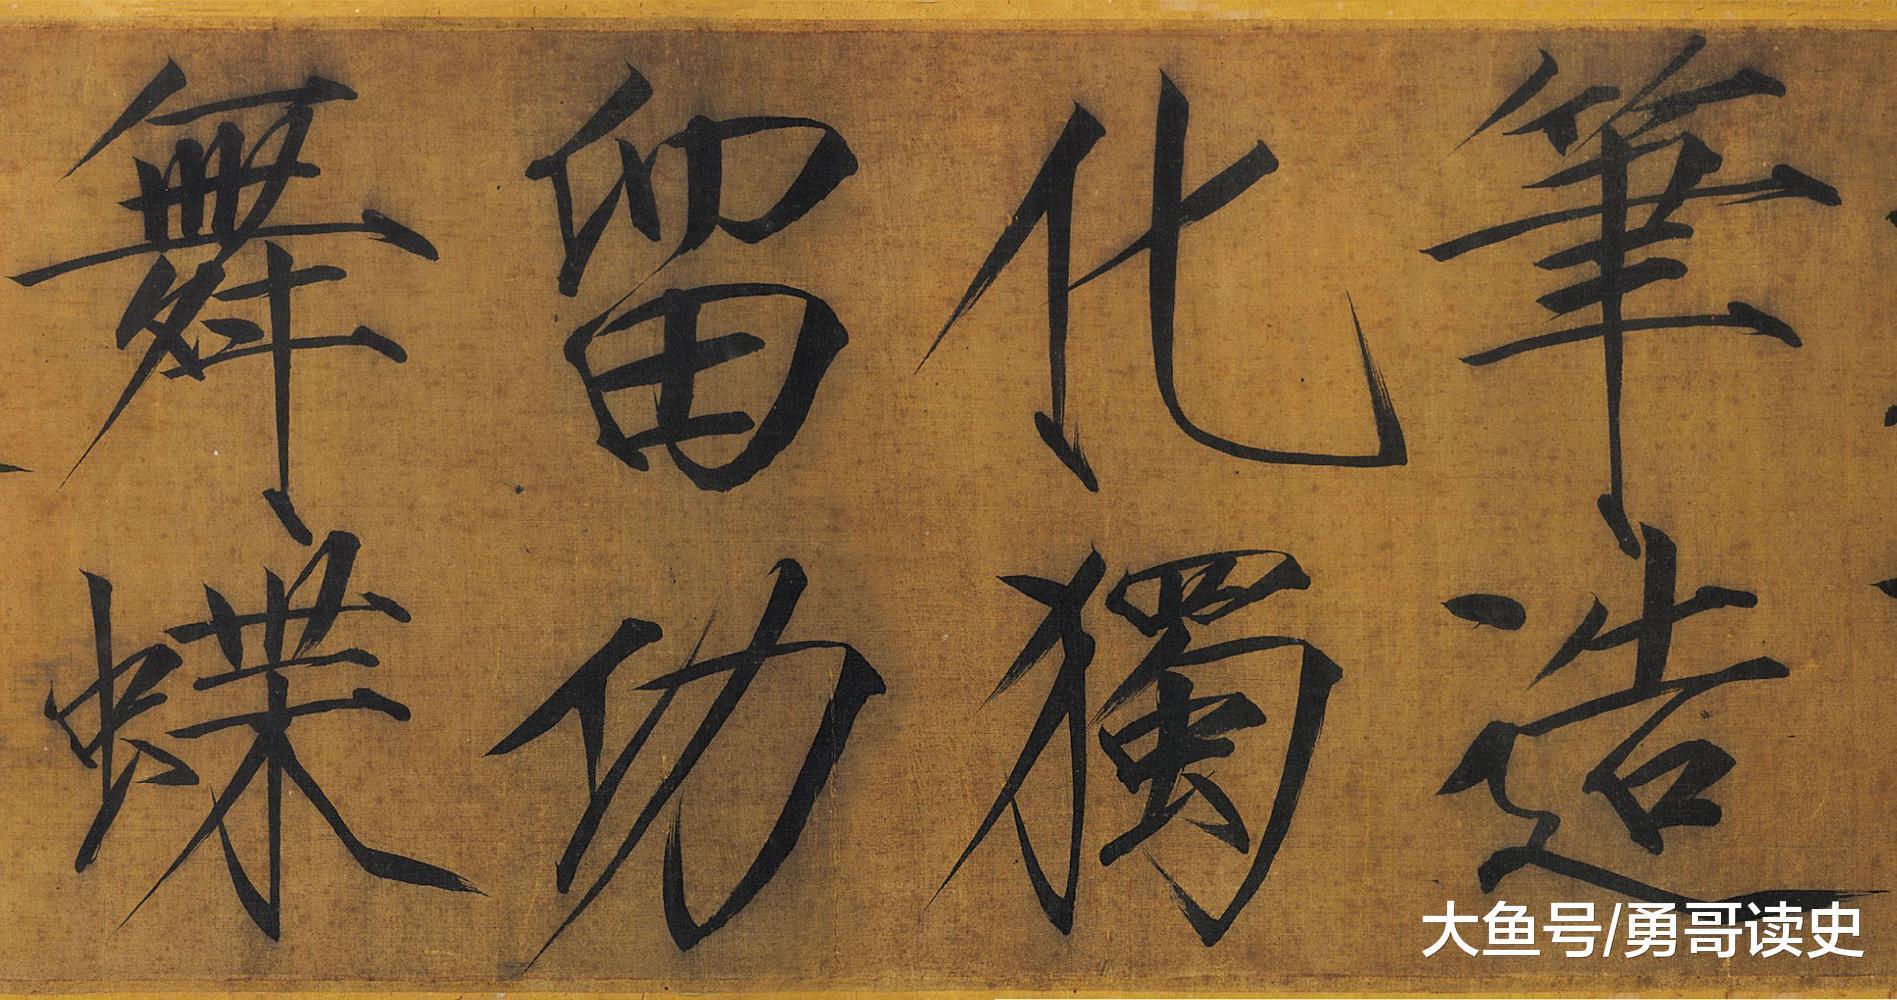 筆造
化獨
留功
舞蝶
大鱼号/勇哥读史